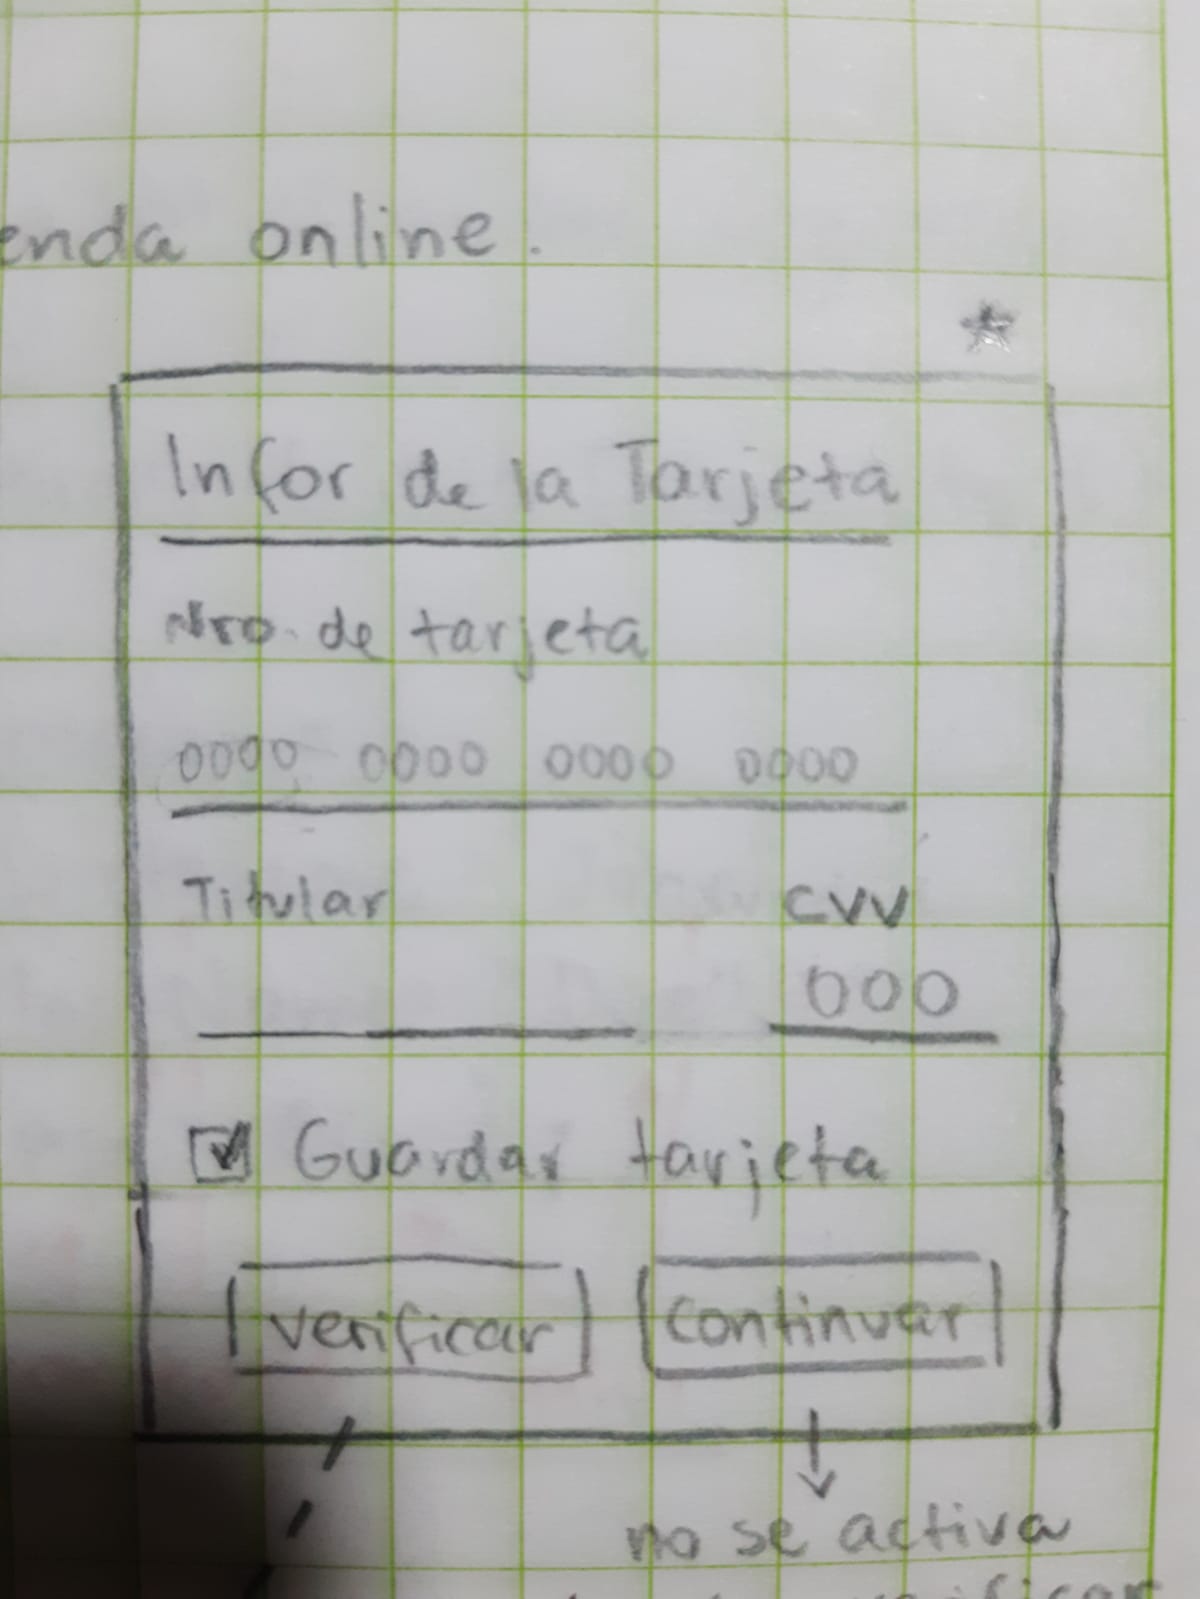 enda online.
Infor de la Tarjeta
Nro. de tarjeta
0000 0000 0000 0000
Titular CVV
000
Guardar tarjeta
verificar continuar
no se activa